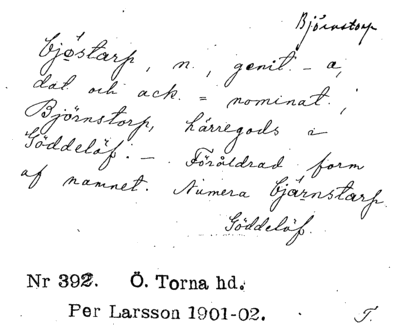 Björnstorp
bjǿstarp, n., genit. - a,
dat. och ack. = nominat.;
Björnstorp, härregods i
Göddelöf. – Föråldrad form
af namnet. Numera bjǻrnstarp.
Göddelöf.
Nr 392. Ö. Torna hd.
Per Larsson 1901-02. F.